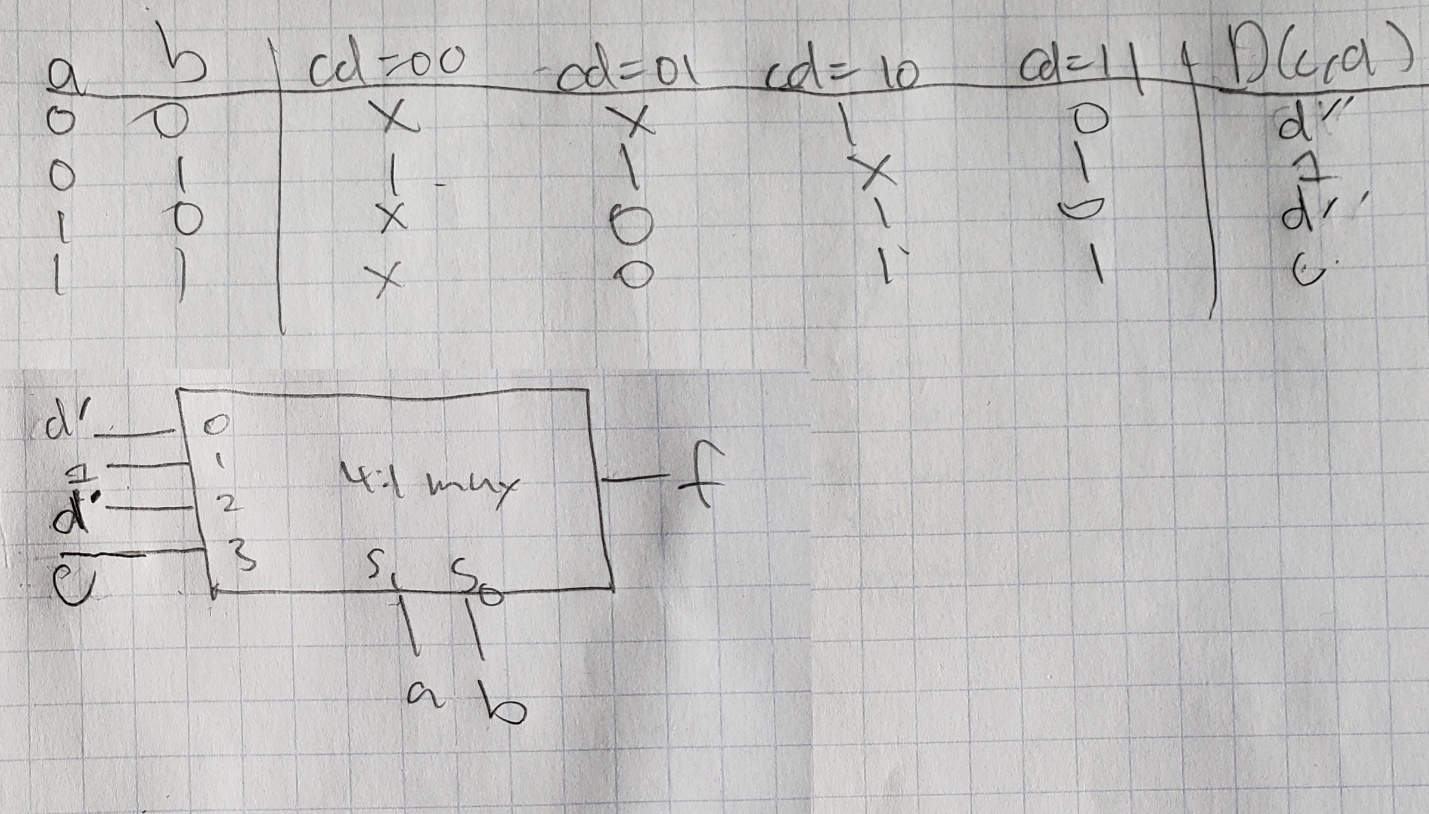 a b cd=00 cd=01 cd=10 cd=11 D(c,d)
0 0 X X 1 0 d'
0 1 1 1 X 1 1
1 0 X 0 1 0 d'
1 1 X 0 1 1 c
d' 0
1 1 4:1 mux f
d' 2
c 3 S1 S0
a b